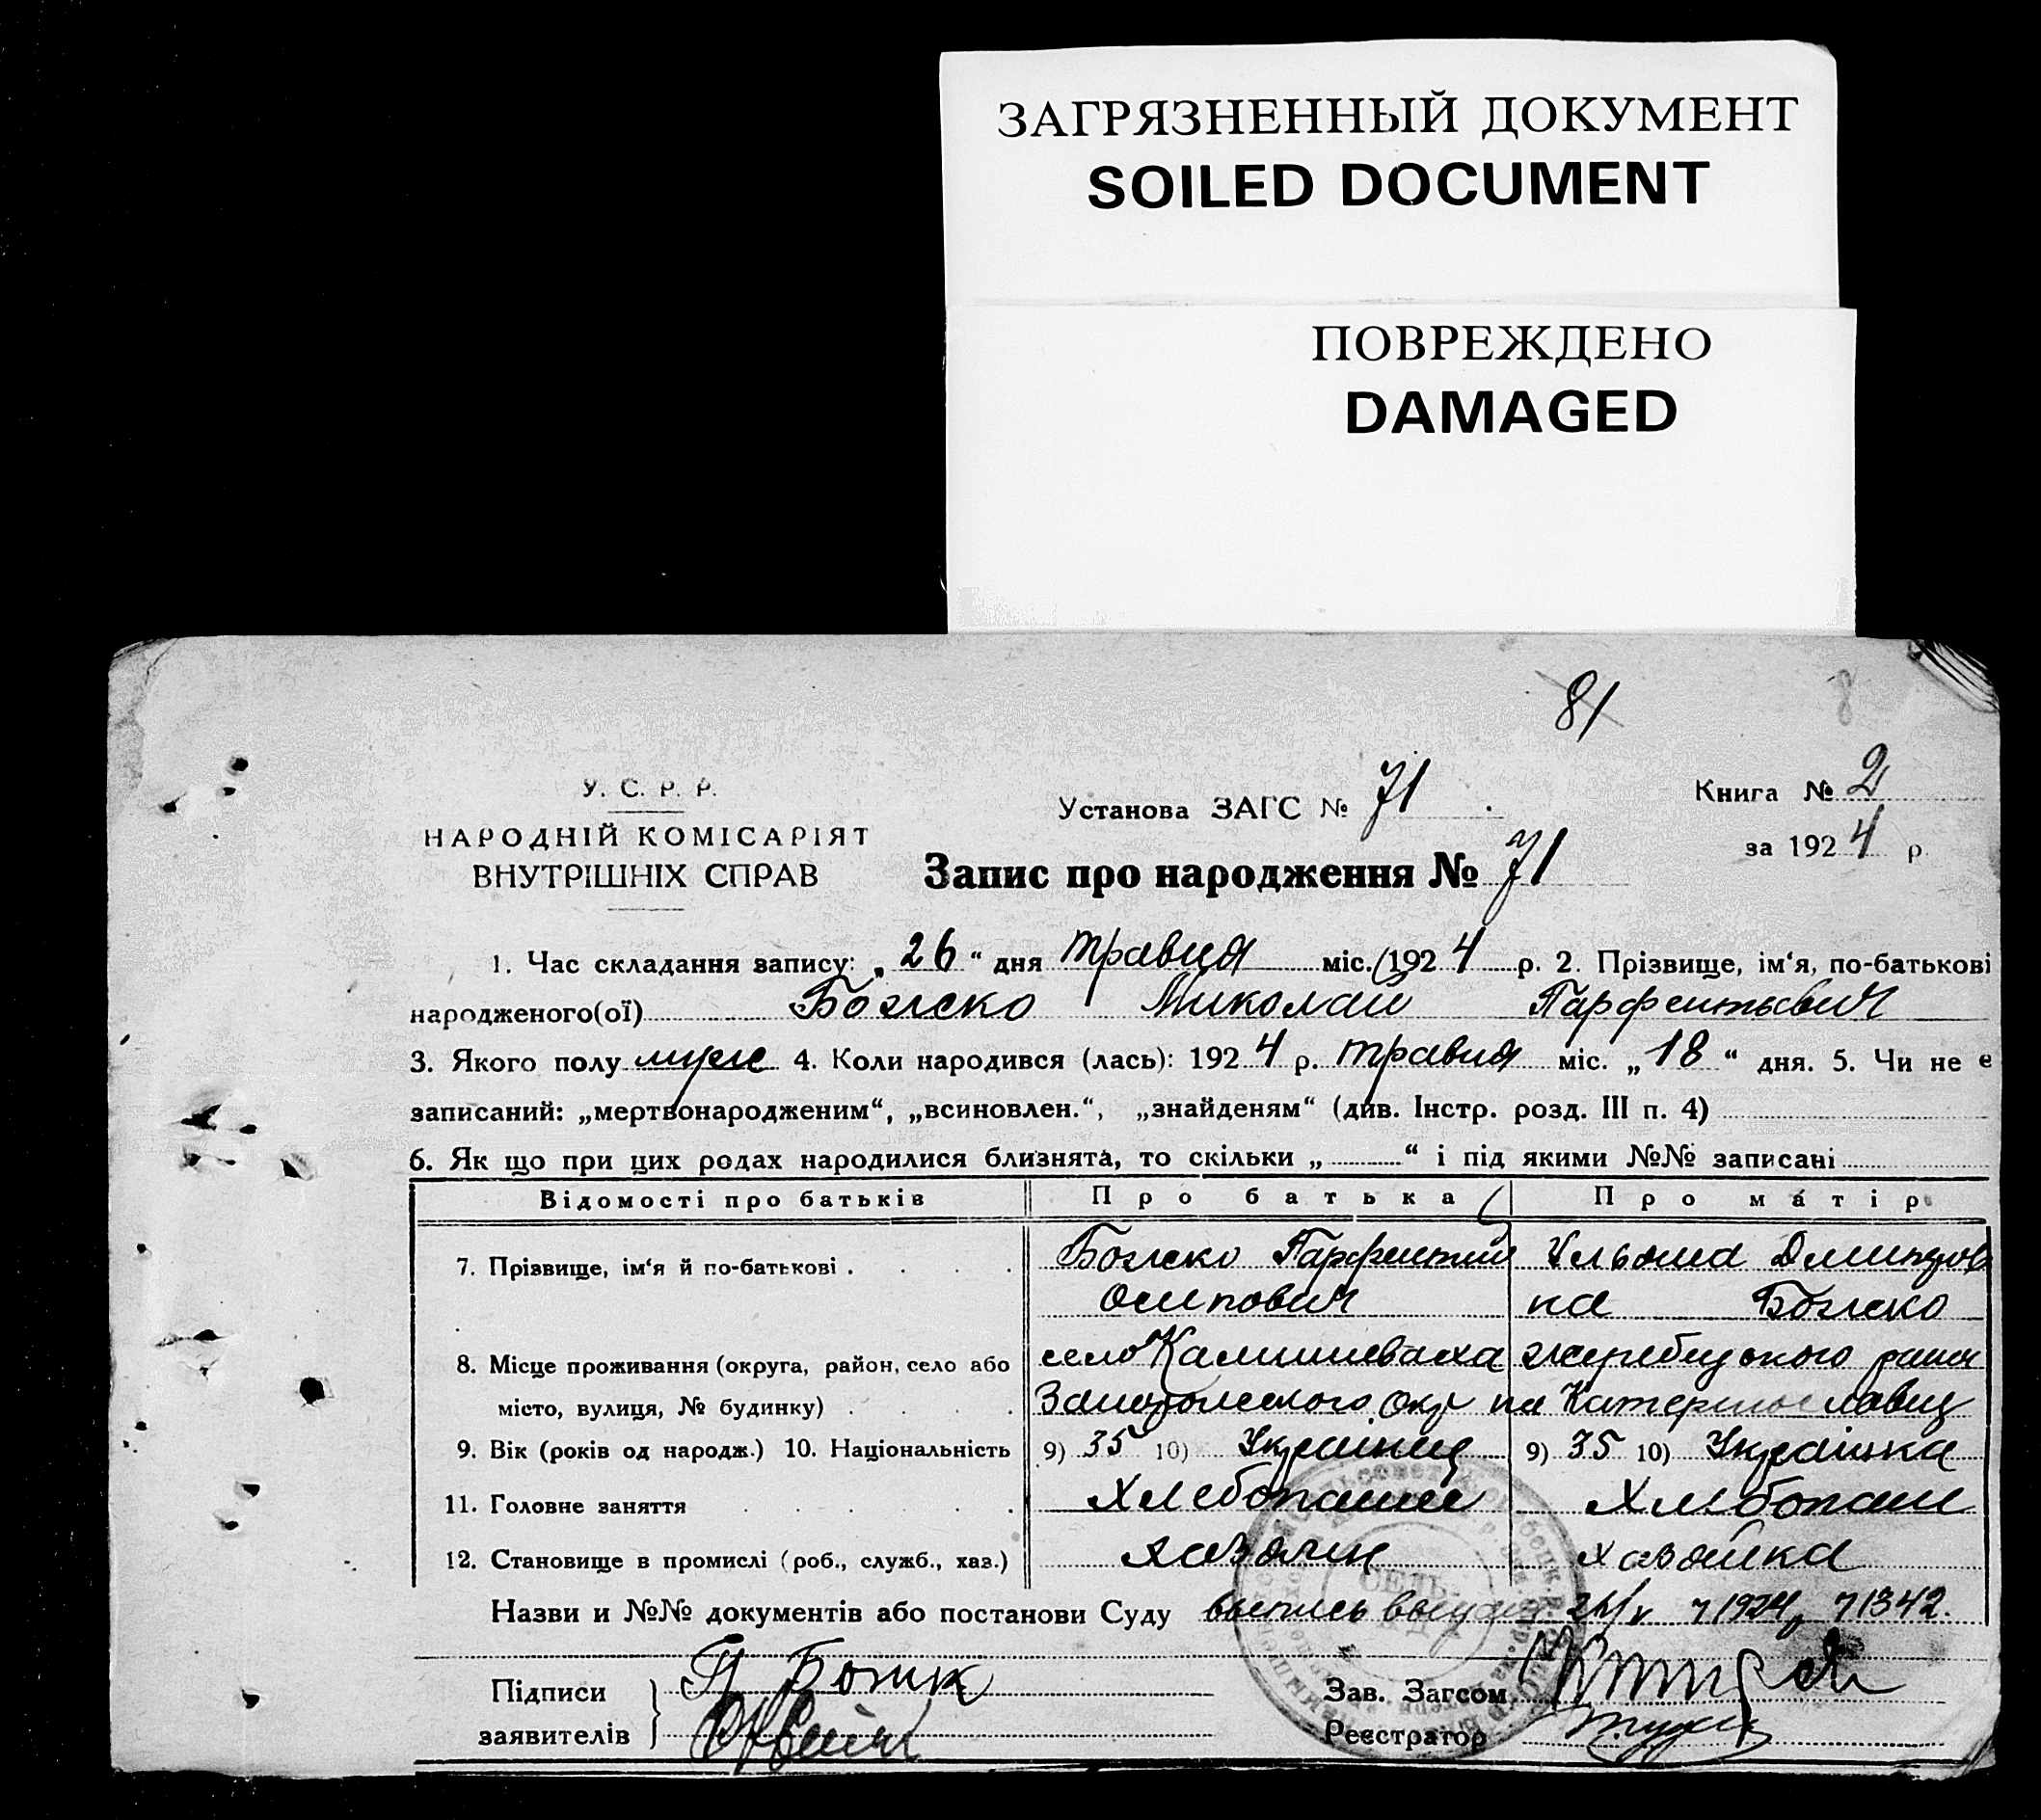 ЗАГРЯЗНЕННЫЙ ДОКУМЕНТ
SOILED DOCUMENT
ПОВРЕЖДЕНО
DAMAGED
81
8
У. С. Р. Р.
НАРОДНІЙ КОМІСАРІЯТ
ВНУТРІШНІХ СПРАВ
Установа ЗАГС № 71
Книга № 2
за 1924 р.
Запис про народження № 71
1. Час складання запису: „26“ дня травця міс. 1924 р. 2. Прізвище, ім‘я, по-батькові
народженого(ої) Божко Миколай Парфентьевич
3. Якого полу муже 4. Коли народився (лась): 1924 р. травця міс. „18“ дня. 5. Чи не е
записаний: „мертвонародженим“, „всиновлен.“, „знайденям“ (див. Інстр. розд. III п. 4)
6. Як що при цих родах народилися близнята, то скільки „ “ і під якими №№ записані
Відомості про батьків Про батька Про матір
7. Прізвище, ім‘я й по-батькові . . . . Божко Парфентий Ульяна Дмитров
Осипович на Божко
8. Місце проживання (округа, район, село або село Камишеваха жеребцского район
місто, вулиця, № будинку) . . . . окр на Катеринославщ
9. Вік (років од народж.) 10. Національність 9) 35 10) Українец 9) 35 10) Українка
11. Головне заняття . . . . . . Хлебопашец Хлібопаш
12. Становище в промислі (роб., служб., хаз.) хазяин хазяйка
Назви и №№ документів або постанови Суду выпись 1924 71342.
Підписи П Божк Зав. Загсом
заявителів Реєстратор
СЕЛЬ-